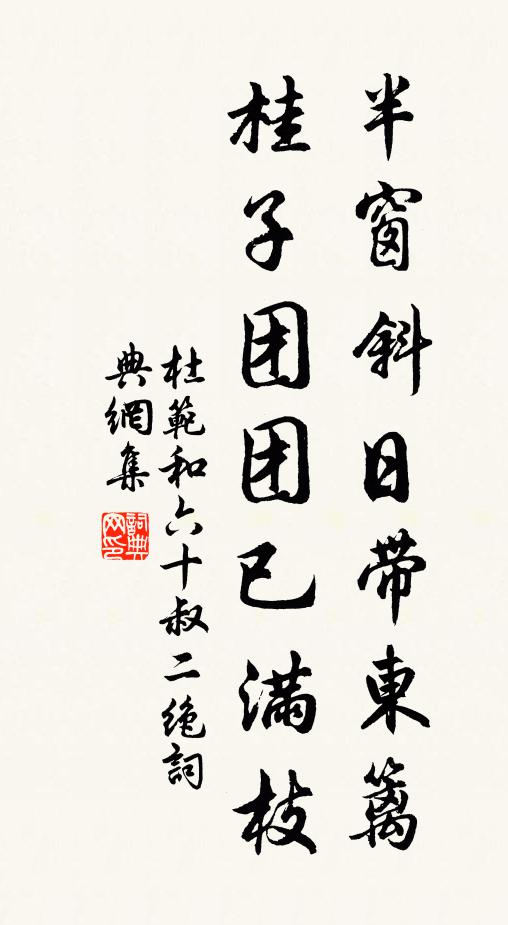 半窗斜日帶東篱
桂子团团已满枝
杜範和六十叔二绝詞
典網集
詞典网印